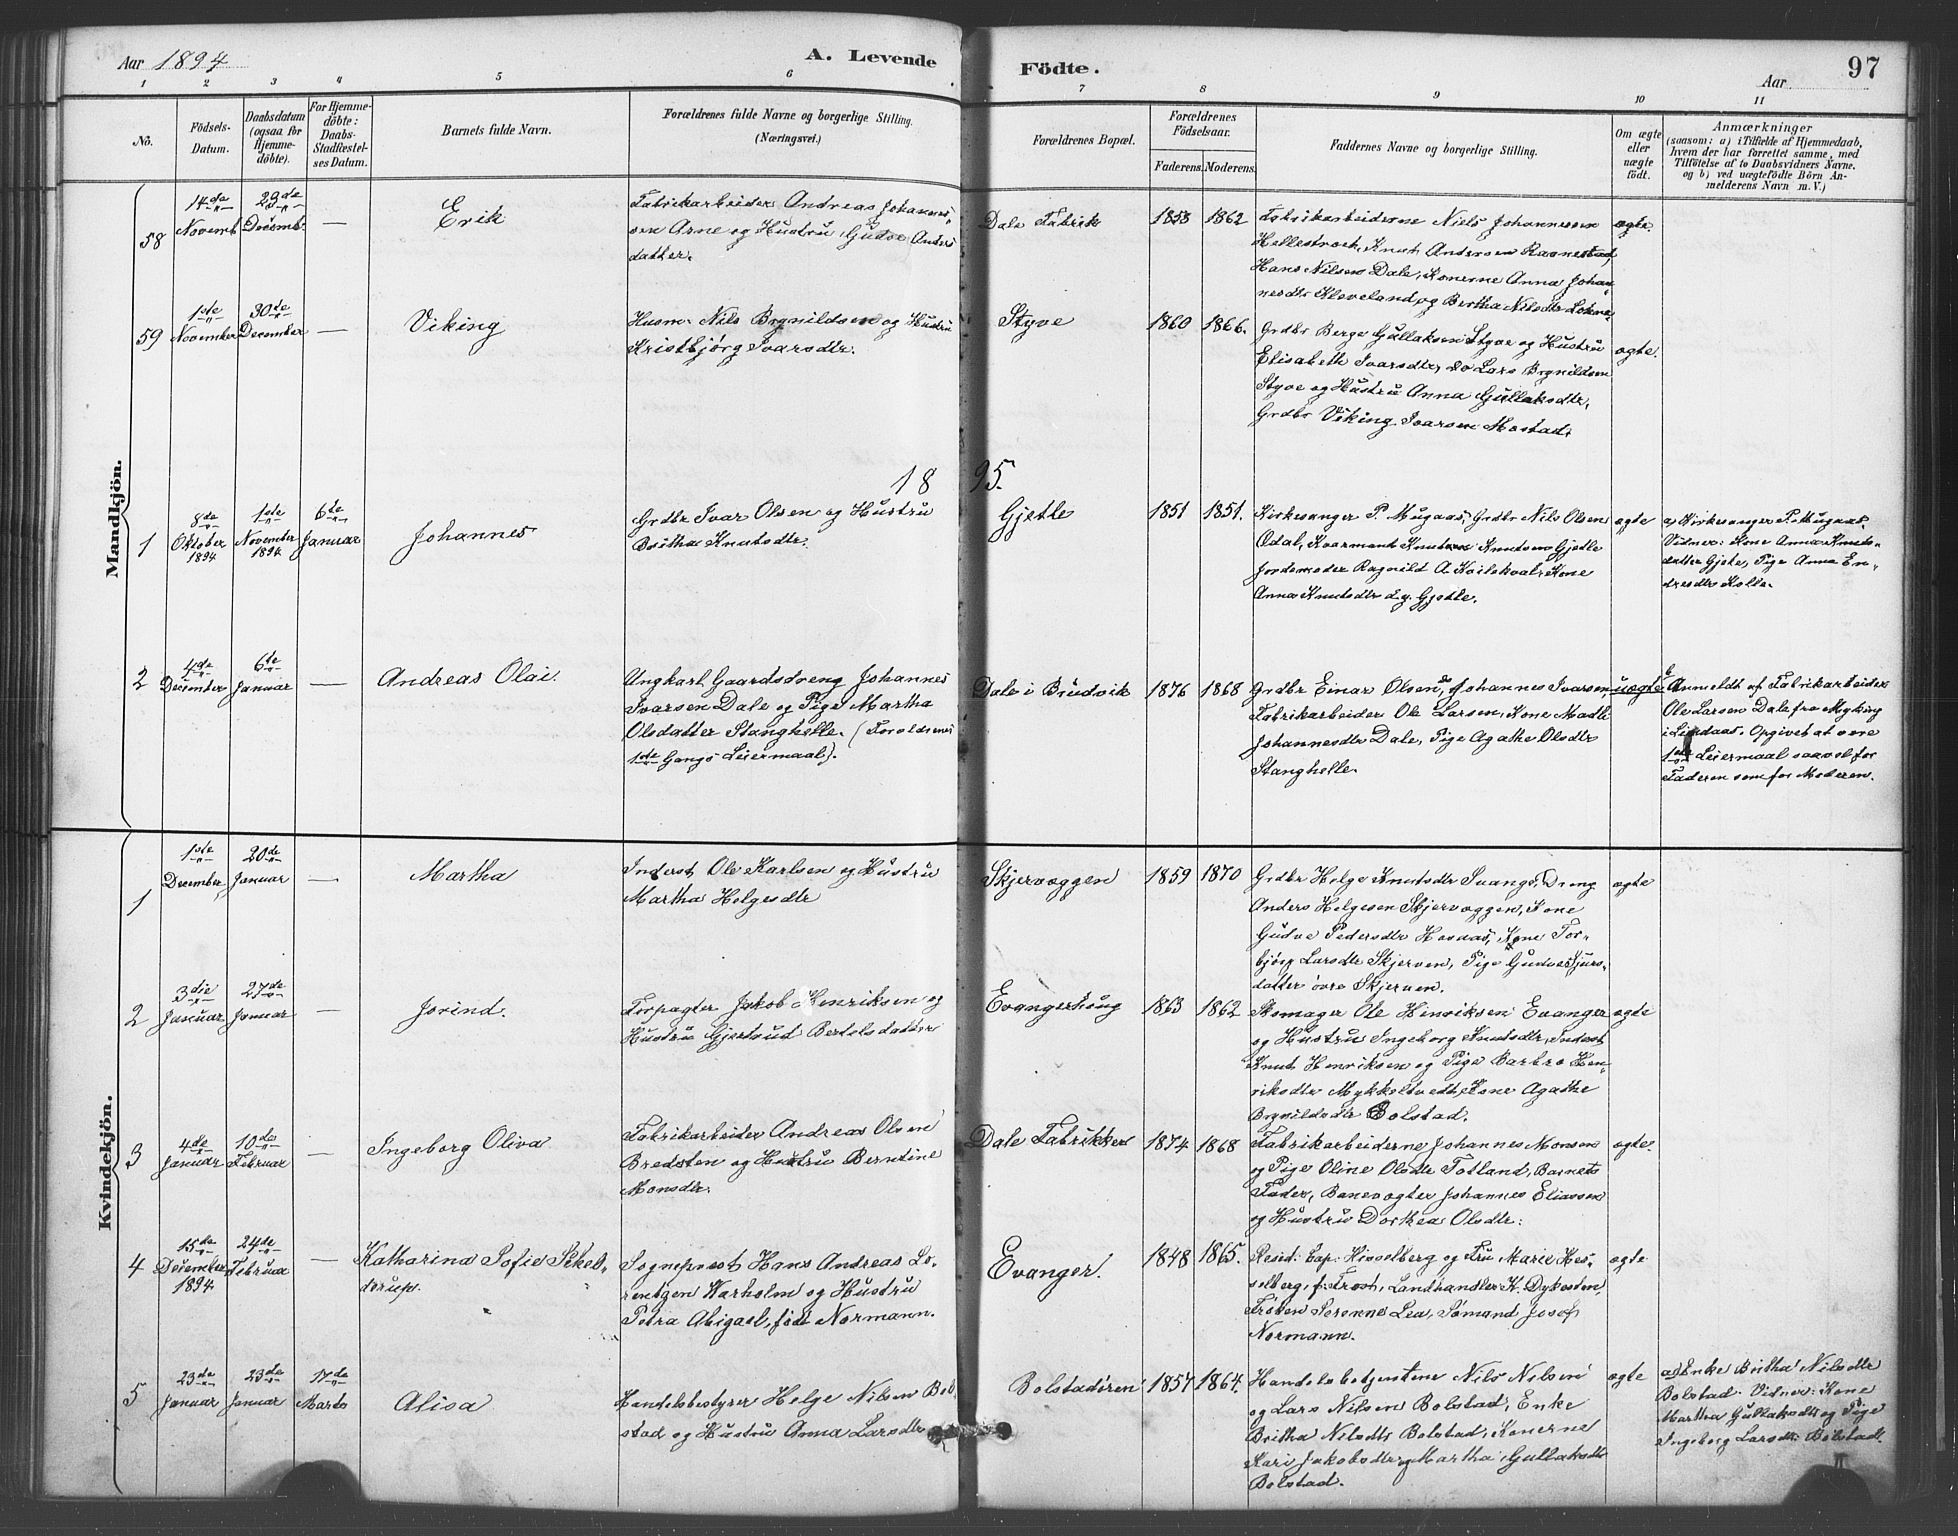 Aar 1894
A. Levende
Födte.
Aar
97
1 2 3 4 5 6 7 8 9 10 11
No.
Födsels-
Datum.
Daabsdatum
(ogsaa for
Hjemme-
döbte).
For Hjemme-
döbte:
Daabs-
Stadfæstel-
ses Datum.
Barnets fulde Navn.
Forældrenes fulde Navne og borgerlige Stilling.
(Næringsvei.)
Forældrenes Bopæl.
Forældrenes
Födselsaar.
Faderens. Moderens.
Faddernes Navne og borgerlige Stilling.
Om ægte
eller
uægte
födt.
Anmærkninger
(saasom: a) i Tilfælde af Hjemmedaab,
hvem der har forrettet samme, med
Tilföielse af to Daabsvidners Navne.
og b) ved uægtefödte Börn An-
melderens Navn m. V.)
Mandkjön.
58
14de
Novemb
23de
Decemb.
—
Erik
Fabrikarbeider Andreas Johannes-
sen Arne og Hustru Gudve Anders
datter.
Dale Fabrik
1858 1862
Fabrikarbeiderne Nils Johannesen
Hellestræt, Knut Andersen
Hans Nilsen Dale, Konerne Anna Johan-
nesdtr Kleveland og Bertha Nilsdtr
ægte.
59
1ste
November
30de
December
—
Viking
Husm. Nils Brynildsen og Hustru
Kristbjørg Ivarsdtr.
Styve
1860 1866.
Grdbr Berge Gullaksen Styve og Hustru
Elisabeth Ivarsdtr, do Lars Brynildsen
Styve og Hustru Anna Gullaksdtr,
Grdbr Viking Ivarsen Mostad.
ægte.
1895.
1
8de
Oktober
1894
1ste
November
1894
6te
Januar
Johannes
Grdbr Ivar Olsen og Hustru
Britha Knutsdtr.
Gjetle
1851 1851.
Kirkesanger P. Mugaas, Grdbr Nils Olsen
Odal, Kvarmant Knutsen Gjetle
Jordemoder Ragnild A Kvilekval, Kone
Anna Knutsdtr d.y. Gjetle.
ægte
a) Kirkesanger P. Mugaas.
Vidner: Kone Anna Knuts-
datter Gjetle, Pige Anna En-
dresdtr Kolle.
2
4de
December
6te
Januar
—
Andreas Olai
Ungkarl Gaardsdreng Johannes
Ivarsen Dale og Pige Martha
Olsdatter Stanghelle. (Forældrenes
1ste Gangs Leiermaal).
Dale i Brudvik
1876 1868
Grdbr Einar Olsen, do Johannes Ivarsen,
Fabrikarbeider Ole Larsen, Kone Madli
Johannesdtr Dale, Pige Agathe Olsdtr
Stanghelle.
uægte
b) Anmeldt af Fabrikarbeider
Ole Larsen Dale fra Myking
i Lindaas. Opgivet at være
1ste Leiermaal saavel for
Faderen som for Moderen.
Kvindekjön.
1
1ste
December
20de
Januar
—
Martha
Inderst Ole Karlsen og Hustru
Martha Helgesdtr
Skjervæggen
1859 1870
Grdbr Helge Knutsdtr Svangs, Dreng
Anders Helgesen Skjervæggen, Kone
Gudve Pedersdtr Hernæs, Kone Tor-
bjørg Larsdtr Skjerven, Pige Gudve Sjurs-
datter øvre Skjerven.
ægte
2
3die
Januar
27de
Januar
—
Jorind.
Forpagter Jakob Henriksen og
Hustru Gjertrud Bertelsdatter
Evangerhaug
1863 1862
Skomager Ole Henriksen Evanger
og Hustru Ingeborg Knutsdtr, Inderst
Knut Henriksen og Pige Barbro Hen-
riksdtr Mykkeltvedt, Kone Agathe
Brynildsdtr Bolstad.
ægte
3
4de
Januar
10de
Februar
—
Ingeborg Oliva
Fabrikarbeider Andreas Olsen
Bredsten og Hustru Berntine
Monsdtr.
Dale Fabrikker
1874 1868
Fabrikarbeiderne Johannes Monsen
og Pige Oline Olsdtr Totland, Barnets
Fader, Banevogter Johannes Eliassen
og Hustru Dorthea Olsdtr.
ægte.
4
15de
December
1894
24de
Februar
—
Katharina Sofie Sekel-
derup.
Sogneprest Hans Andreas Lo-
rentzen Karholm og Hustru
Petra Abigael, født Normann.
Evanger.
1848 1865.
Resid. Cap. Hesselberg og Fru Marie Hes-
selberg, f. Frost, Landhandler K. Dykesten,
Frøken Serenne Lea, Sømand Josef
Normann.
ægte
5
23de
Januar
23de
Januar
17de
Marts
Alisa
Handelsbestyrer Helge Nilsen Bol-
stad og Hustru Anna Larsdtr
Bolstadøren
1857 1864.
Handelsbetjentene Nils Nilsen
og Lars Nilsen Bolstad, Enke
Britha Nilsdtr Bolstad, Konerne
Kari Jakobsdtr og Martha Gullaksdtr
Bolstad.
ægte
a) Enke Britha Nilsdtr
Bolstad. Vidner: Kone
Martha Gullaksdtr og Pige
Ingeborg Larsdtr Bolstad.